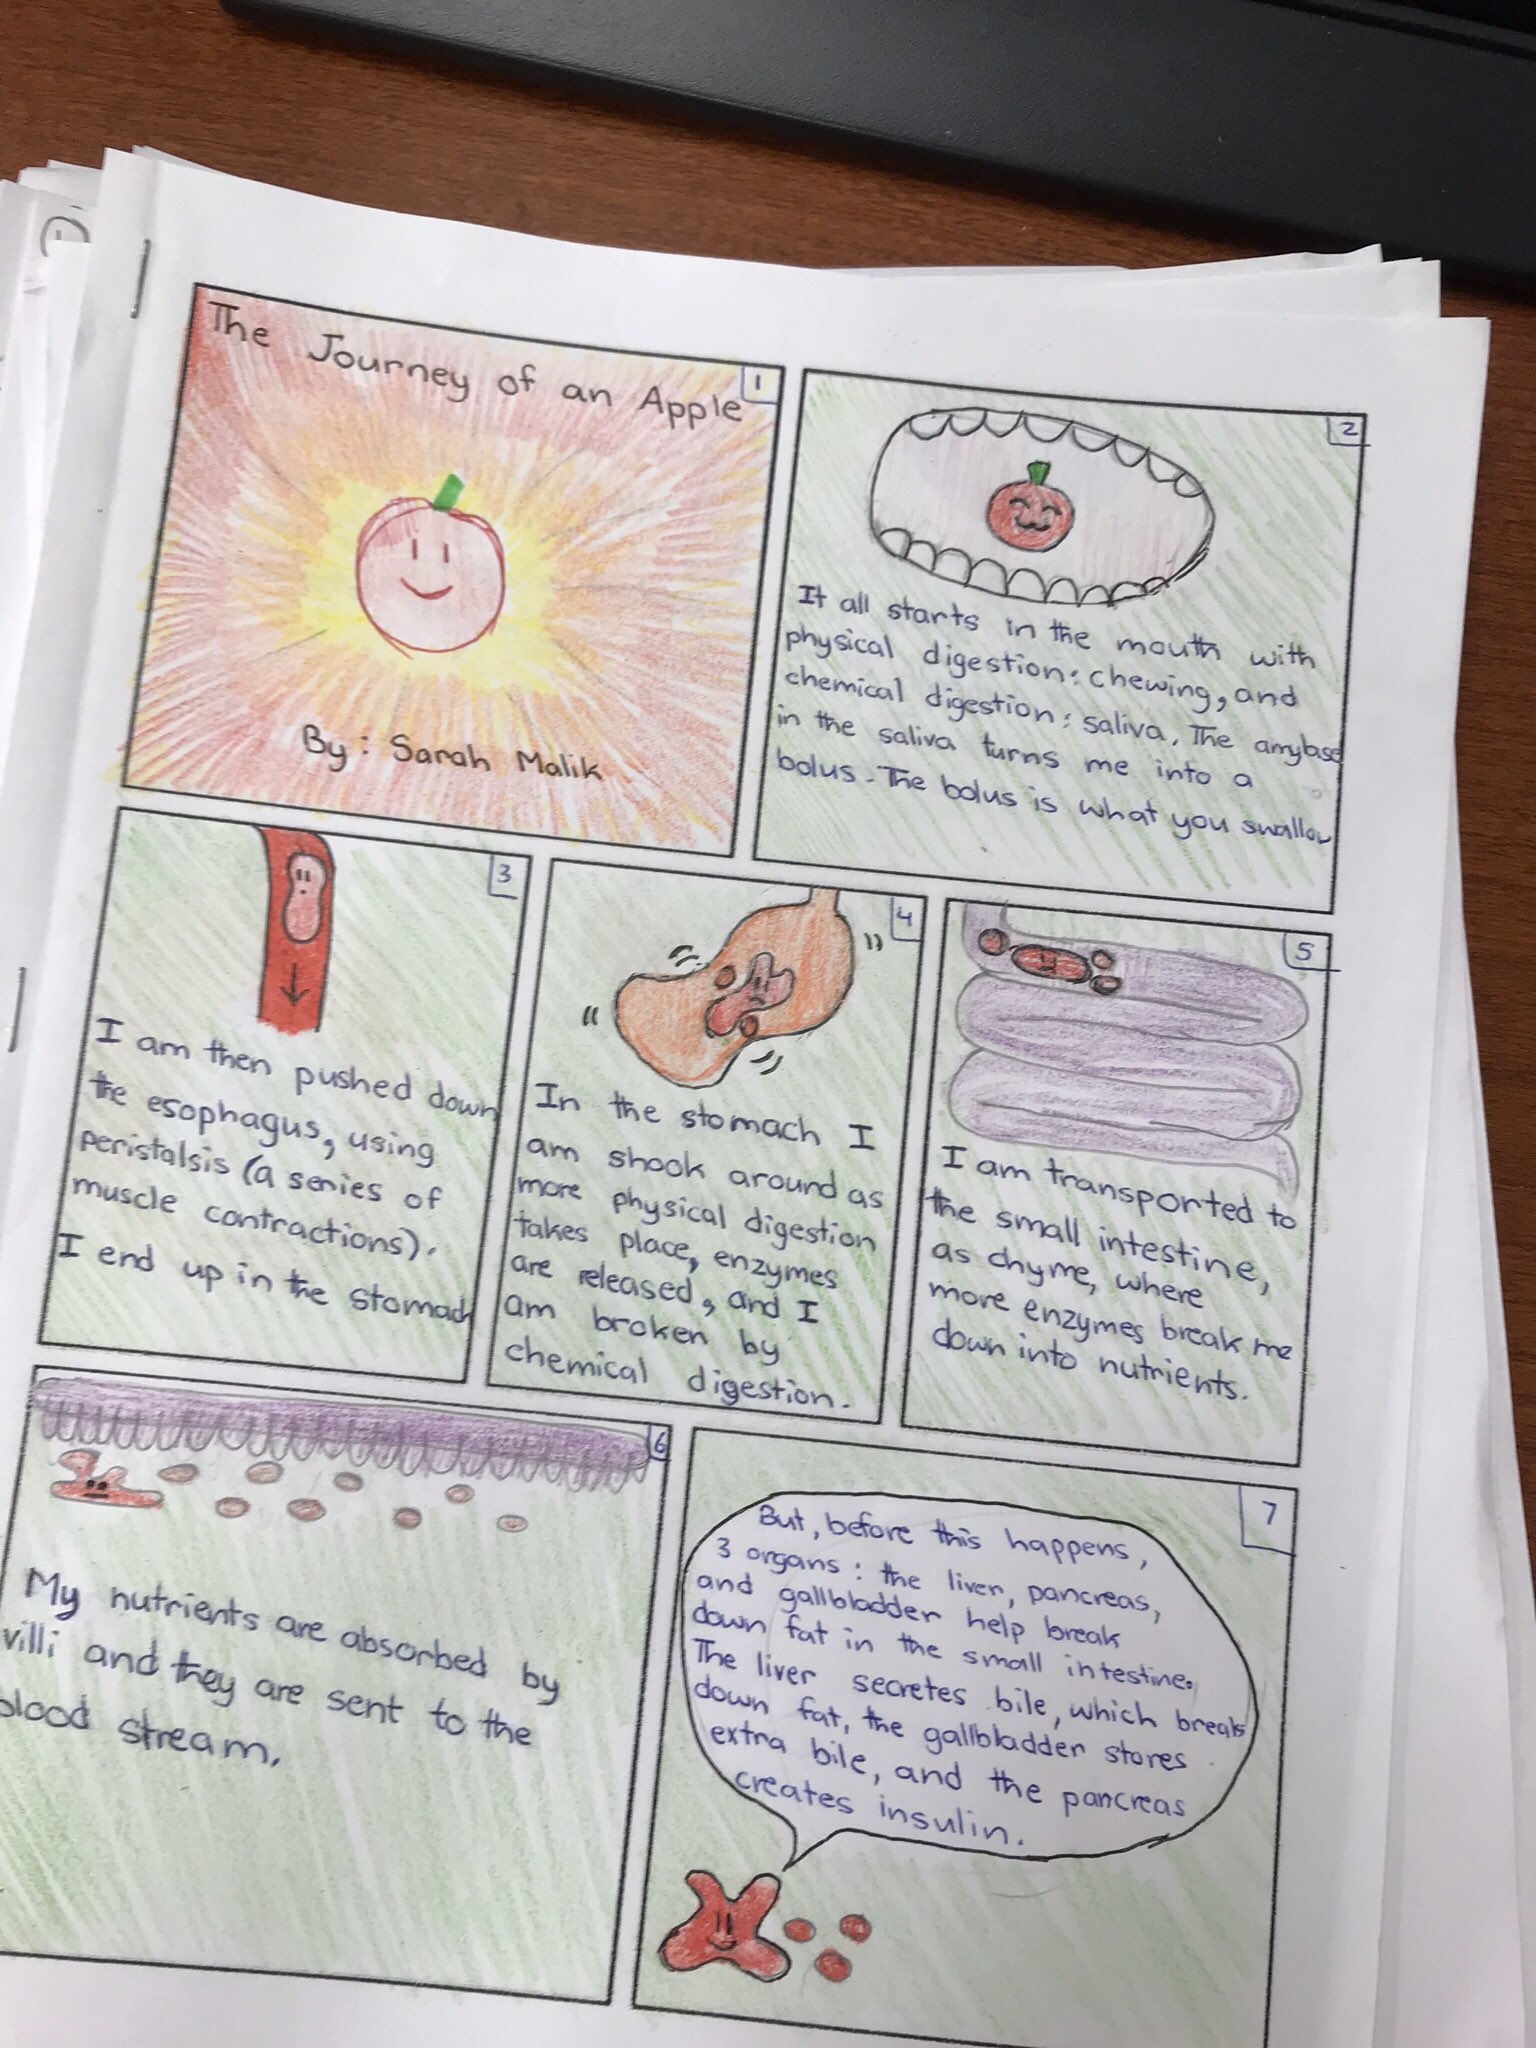 The Journey of an Apple
1
By: Sarah Malik
2
It all starts in the mouth with
physical digestion: chewing, and
chemical digestion: saliva. The amylase
in the saliva turns me into a
bolus. The bolus is what you swallow
3
I am then pushed down
the esophagus, using
peristalsis (a series of
muscle contractions).
I end up in the stomach
4
In the stomach I
am shook around as
more physical digestion
takes place, enzymes
are released, and I
am broken by
chemical digestion.
5
I am transported to
the small intestine,
as chyme, where
more enzymes break me
down into nutrients.
6
My nutrients are absorbed by
villi and they are sent to the
blood stream.
7
But, before this happens,
3 organs: the liver, pancreas,
and gallbladder help break
down fat in the small intestine.
The liver secretes bile, which breaks
down fat, the gallbladder stores
extra bile, and the pancreas
creates insulin.